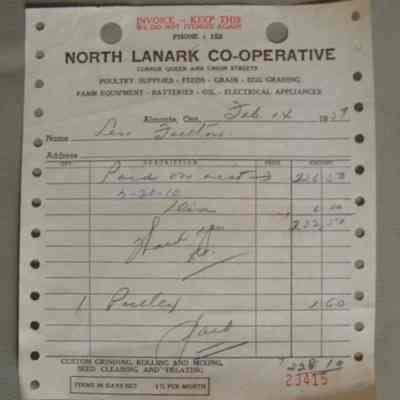 INVOICE - KEEP THIS
WE DO NOT ITEMIZE AGAIN
PHONE : 152
NORTH LANARK CO-OPERATIVE
CORNER QUEEN AND UNION STREETS
POULTRY SUPPLIES - FEEDS - GRAIN - EGG GRADING
FARM EQUIPMENT - BATTERIES - OIL - ELECTRICAL APPLIANCES
Almonte, Ont. Feb. 14 1959
Name Les Fulton
Address
QTY. DESCRIPTION PRICE AMOUNT
Paid on acct
5-20-10
6 00
232 50
Thank you
1 60
Paid
CUSTOM GRINDING, ROLLING AND MIXING,
SEED CLEANING AND TREATING
TERMS 30 DAYS NET 1% PER MONTH
228 10
23415